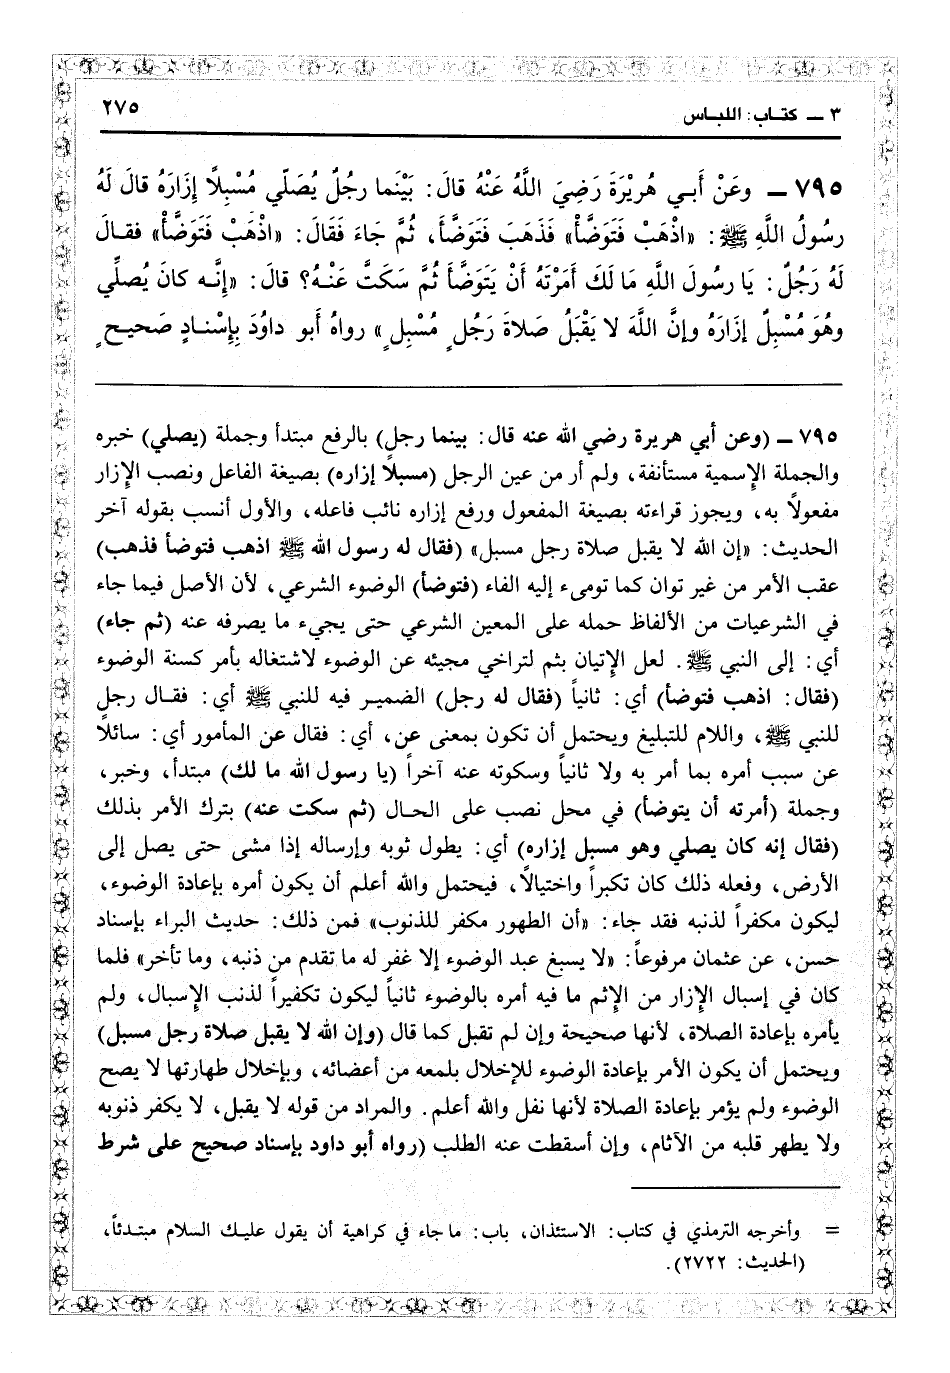 ٣ ــ كتـاب: اللبـاس
٢٧٥
٧٩٥ ــ وعَنْ أَبـي هُرَيْرَةَ رَضِيَ اللَّهُ عَنْهُ قالَ: بَيْنَما رجُلٌ يُصَلّي مُسْبِلًا إِزَارَهُ قالَ لَهُ
رسُولُ اللَّهِ ﷺ: «اذْهَبْ فَتَوَضَّأْ» فَذَهَبَ فَتَوَضَّأَ، ثُمَّ جَاءَ فَقَالَ: «اذْهَبْ فَتَوَضَّأْ» فقـالَ
لَهُ رَجُلٌ: يَا رسُولَ اللَّهِ مَا لَكَ أَمَرْتَهُ أَنْ يَتَوَضَّأَ ثُمَّ سَكَتَّ عَنْـهُ؟ قالَ: «إِنَّـه كانَ يُصلِّي
وهُوَ مُسْبِلٌ إزارَهُ وإنَّ اللَّهَ لا يَقْبَلُ صَلاةَ رَجُلٍ مُسْبِلٍ» رواهُ أبو داوُدَ بِإسْنـادٍ صَحيـحٍ
٧٩٥ ــ (وعن أبي هريرة رضي الله عنه قال: بينما رجل) بالرفع مبتدأ وجملة (يصلي) خبره
والجملة الإسمية مستأنفة، ولم أر من عين الرجل (مسبلًا إزاره) بصيغة الفاعل ونصب الإزار
مفعولًا به، ويجوز قراءته بصيغة المفعول ورفع إزاره نائب فاعله، والأول أنسب بقوله آخر
الحديث: «إن الله لا يقبل صلاة رجل مسبل» (فقال له رسول الله ﷺ اذهب فتوضأ فذهب)
عقب الأمر من غير توان كما تومىء إليه الفاء (فتوضأ) الوضوء الشرعي، لأن الأصل فيما جاء
في الشرعيات من الألفاظ حمله على المعين الشرعي حتى يجيء ما يصرفه عنه (ثم جاء)
أي: إلى النبي ﷺ. لعل الإتيان بثم لتراخي مجيئه عن الوضوء لاشتغاله بأمر كسنة الوضوء
(فقال: اذهب فتوضأ) أي: ثانياً (فقال له رجل) الضميـر فيه للنبي ﷺ أي: فقـال رجل
للنبي ﷺ، واللام للتبليغ ويحتمل أن تكون بمعنى عن، أي: فقال عن المأمور أي: سائلًا
عن سبب أمره بما أمر به ولا ثانياً وسكوته عنه آخراً (يا رسول الله ما لك) مبتدأ، وخبر،
وجملة (أمرته أن يتوضأ) في محل نصب على الحـال (ثم سكت عنه) بترك الأمر بذلك
(فقال إنه كان يصلي وهو مسبل إزاره) أي: يطول ثوبه وإرساله إذا مشى حتى يصل إلى
الأرض، وفعله ذلك كان تكبراً واختيالًا، فيحتمل والله أعلم أن يكون أمره بإعادة الوضوء،
ليكون مكفراً لذنبه فقد جاء: «أن الطهور مكفر للذنوب» فمن ذلك: حديث البراء بإسناد
حسن، عن عثمان مرفوعاً: «لا يسبغ عبد الوضوء إلا غفر له ما تقدم من ذنبه، وما تأخر» فلما
كان في إسبال الإزار من الإثم ما فيه أمره بالوضوء ثانياً ليكون تكفيراً لذنب الإسبال، ولم
يأمره بإعادة الصلاة، لأنها صحيحة وإن لم تقبل كما قال (وإن الله لا يقبل صلاة رجل مسبل)
ويحتمل أن يكون الأمر بإعادة الوضوء للإخلال بلمعه من أعضائه، وبإخلال طهارتها لا يصح
الوضوء ولم يؤمر بإعادة الصلاة لأنها نفل والله أعلم. والمراد من قوله لا يقبل، لا يكفر ذنوبه
ولا يطهر قلبه من الآثام، وإن أسقطت عنه الطلب (رواه أبو داود بإسناد صحيح على شرط
= وأخرجه الترمذي في كتاب: الاستئذان، باب: ما جاء في كراهية أن يقول عليـك السلام مبتـدئاً،
(الحديث: ٢٧٢٢).